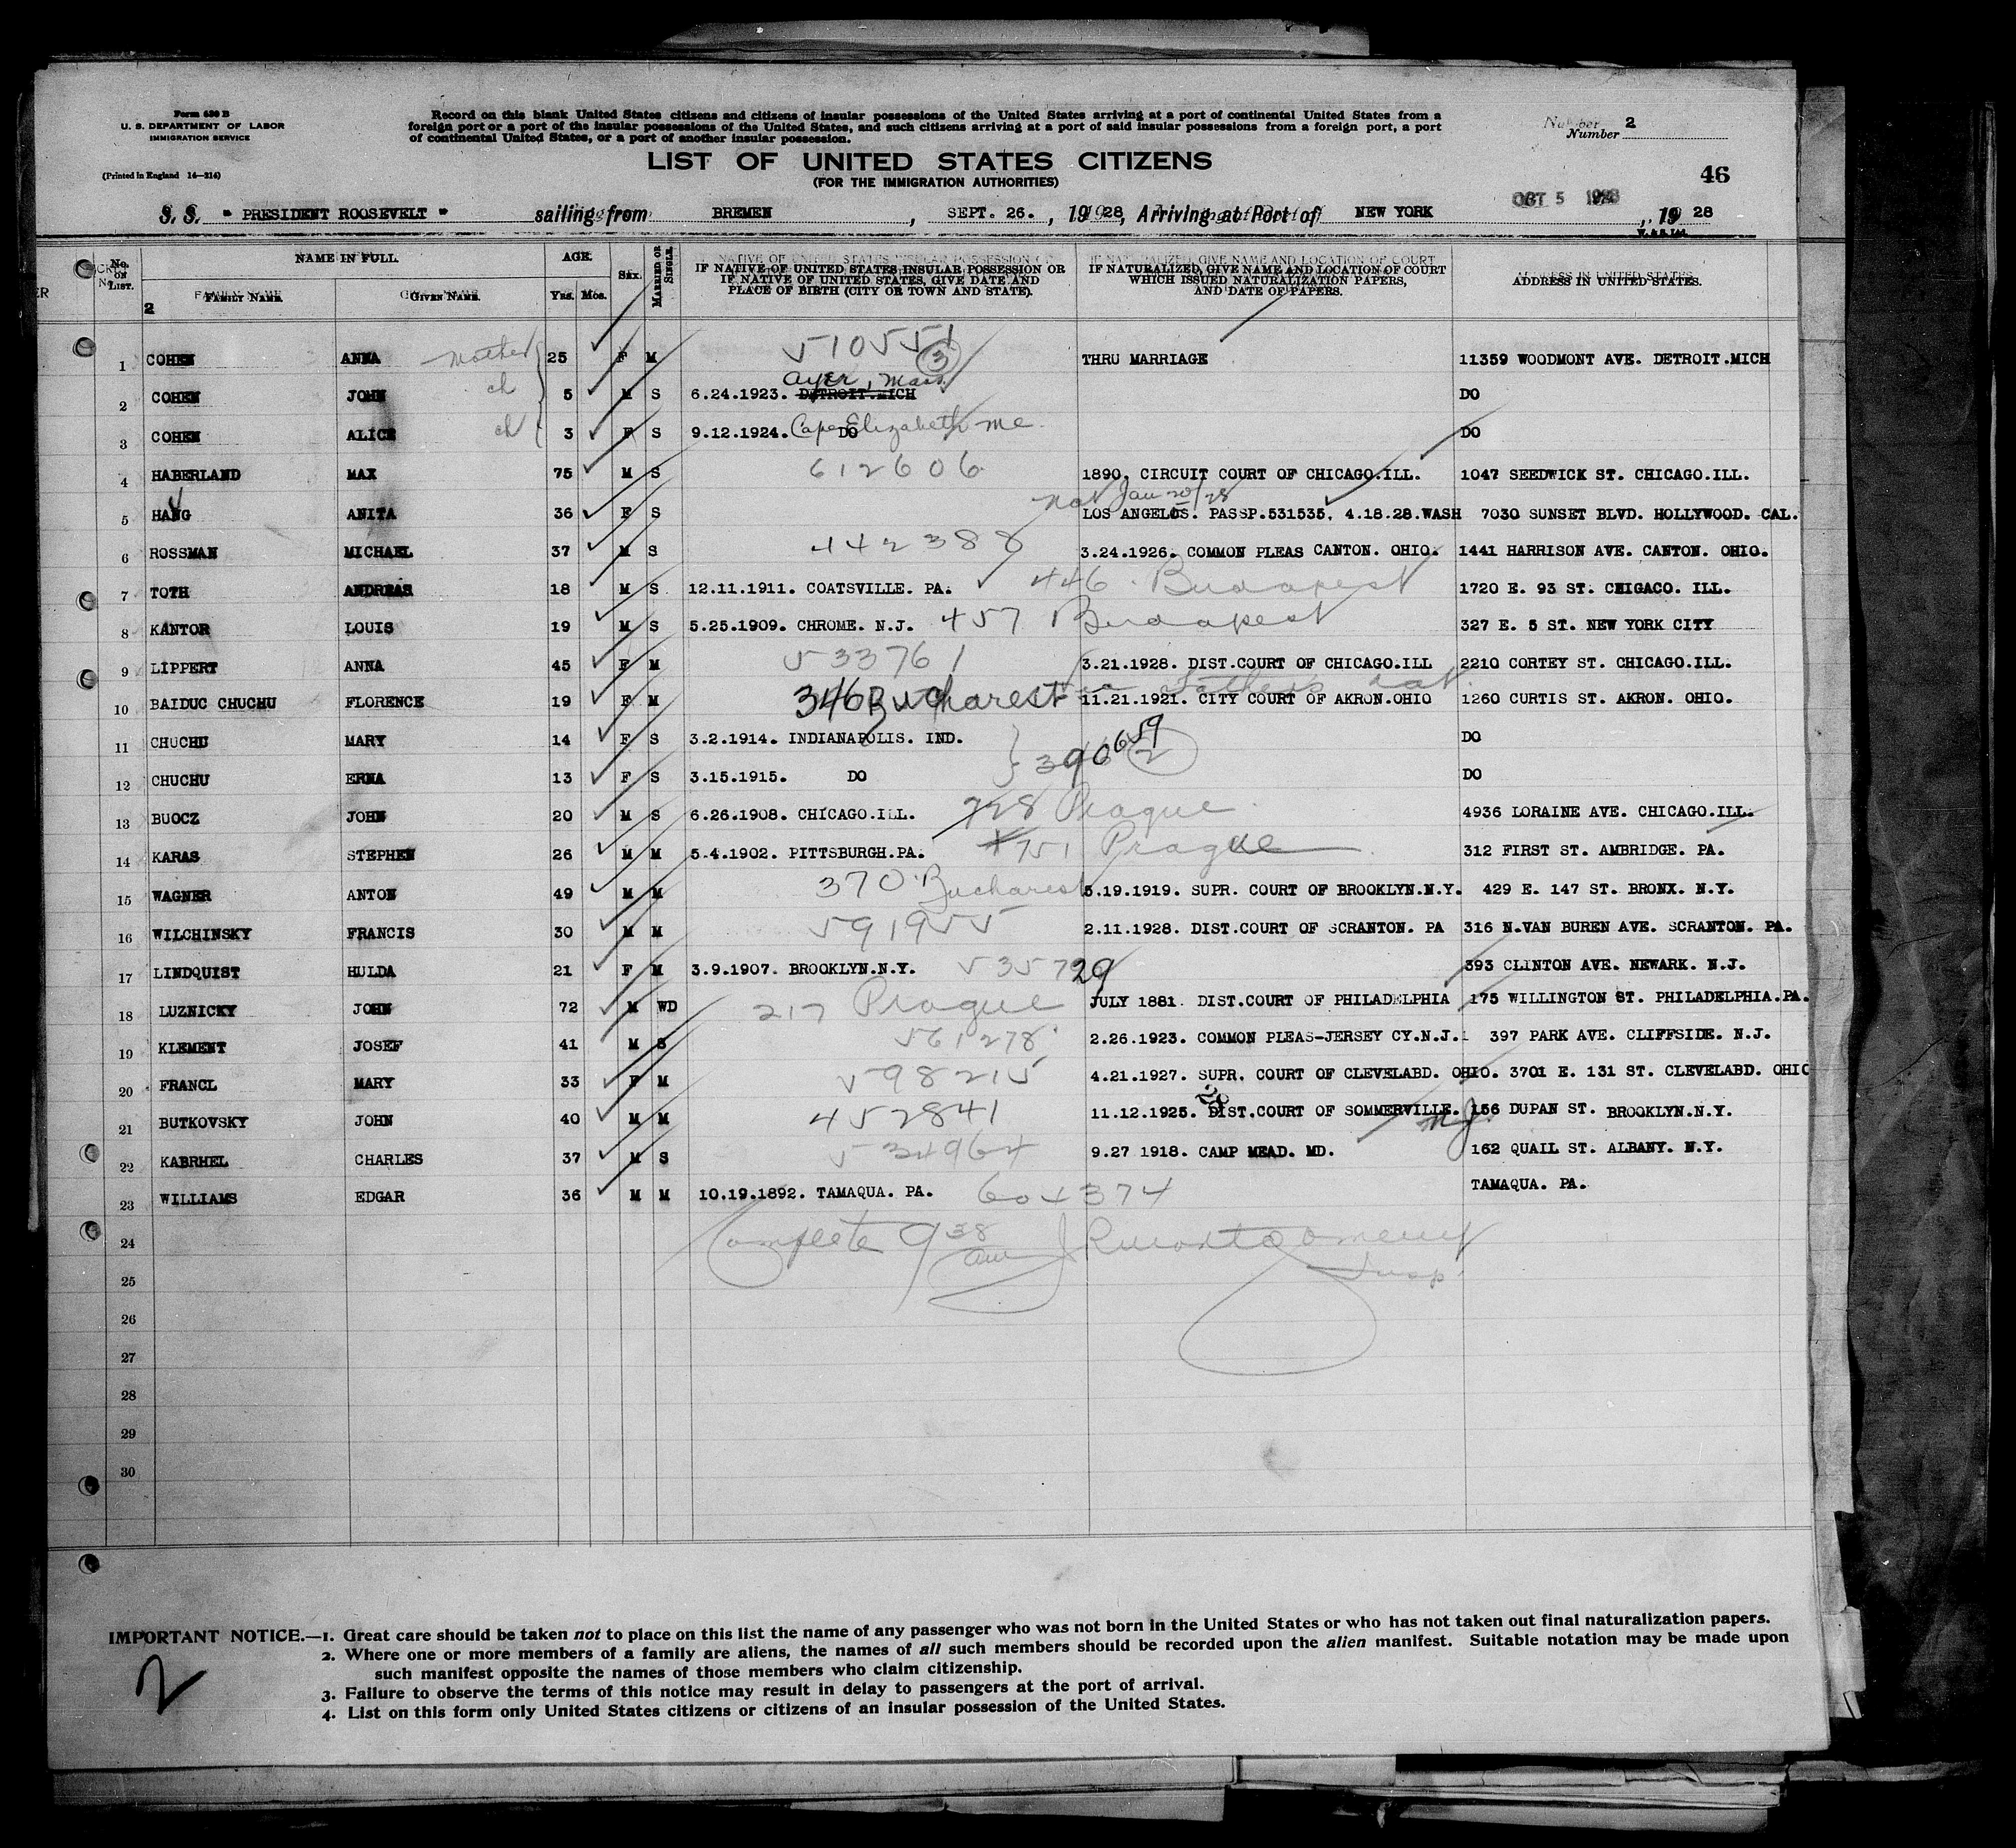 Form 630 B
U. S. DEPARTMENT OF LABOR
IMMIGRATION SERVICE
(Printed in England 14—214)
Record on this blank United States citizens and citizens of insular possessions of the United States arriving at a port of continental United States from a
foreign port or a port of the insular possessions of the United States, and such citizens arriving at a port of said insular possessions from a foreign port, a port
of continental United States, or a port of another insular possession.
Number 2
LIST OF UNITED STATES CITIZENS
(FOR THE IMMIGRATION AUTHORITIES)
46
S. S. " PRESIDENT ROOSEVELT " sailing from BREMEN, SEPT. 26., 1928, Arriving at Port of NEW YORK OCT 5 1928, 1928
No. ON LIST. NAME IN FULL. AGE. SEX. MARRIED OR SINGLE. IF NATIVE OF UNITED STATES INSULAR POSSESSION OR IF NATIVE OF UNITED STATES, GIVE DATE AND PLACE OF BIRTH (CITY OR TOWN AND STATE). IF NATURALIZED, GIVE NAME AND LOCATION OF COURT WHICH ISSUED NATURALIZATION PAPERS, AND DATE OF PAPERS. ADDRESS IN UNITED STATES.
2 FAMILY NAME. GIVEN NAME. Yrs. Mos.
1 COHEN ANNA mother 25 F M 510551 3 THRU MARRIAGE 11359 WOODMONT AVE. DETROIT.MICH
2 COHEN JOHN ch 5 M S 6.24.1923. DETROIT.MICH Ayer, Mass DO
3 COHEN ALICE ch 3 F S 9.12.1924. DO Cape Elizabeth Me. DO
4 HABERLAND MAX 75 M S 612606 1890. CIRCUIT COURT OF CHICAGO.ILL. 1047 SEEDWICK ST. CHICAGO.ILL.
5 HANG ANITA 36 F S nat Jan 20/28 LOS ANGELOS. PASSP.531535. 4.18.28.WASH 7030 SUNSET BLVD. HOLLYWOOD. CAL.
6 ROSSMAN MICHAEL 37 M S 442388 3.24.1926. COMMON PLEAS CANTON. OHIO. 1441 HARRISON AVE. CANTON. OHIO.
7 TOTH ANDREAS 18 M S 12.11.1911. COATSVILLE. PA. 446 Budapest 1720 E. 93 ST. CHIGACO. ILL.
8 KANTOR LOUIS 19 M S 5.25.1909. CHROME. N.J. 457 Budapest 327 E. 5 ST. NEW YORK CITY
9 LIPPERT ANNA 45 F M 533761 3.21.1928. DIST.COURT OF CHICAGO.ILL 2210 CORTEY ST. CHICAGO.ILL.
10 BAIDUC CHUCHU FLORENCE 19 F M 346 Bucharest Fathers nat 11.21.1921. CITY COURT OF AKRON.OHIO 1260 CURTIS ST. AKRON. OHIO.
11 CHUCHU MARY 14 F S 3.2.1914. INDIANAPOLIS. IND. 390659 2 DO
12 CHUCHU ERNA 13 F S 3.15.1915. DO DO
13 BUOCZ JOHN 20 M S 6.26.1908. CHICAGO.ILL. 728 Prague 4936 LORAINE AVE. CHICAGO.ILL.
14 KARAS STEPHEN 26 M M 5.4.1902. PITTSBURGH.PA. 751 Prague 312 FIRST ST. AMBRIDGE. PA.
15 WAGNER ANTON 49 M M 370 Bucharest 5.19.1919. SUPR. COURT OF BROOKLYN.N.Y. 429 E. 147 ST. BRONX. N.Y.
16 WILCHINSKY FRANCIS 30 M M 591955 2.11.1928. DIST.COURT OF SCRANTON. PA 316 N.VAN BUREN AVE. SCRANTON. PA.
17 LINDQUIST HULDA 21 F M 3.9.1907. BROOKLYN.N.Y. 535729 393 CLINTON AVE. NEWARK. N.J.
18 LUZNICKY JOHN 72 M WD 217 Prague JULY 1881 DIST.COURT OF PHILADELPHIA 175 WILLINGTON ST. PHILADELPHIA.PA.
19 KLEMENT JOSEF 41 M S 561278 2.26.1923. COMMON PLEAS-JERSEY CY.N.J. 397 PARK AVE. CLIFFSIDE. N.J.
20 FRANCL MARY 33 F M 598215 4.21.1927. SUPR. COURT OF CLEVELABD. OHIO. 3701 E. 131 ST. CLEVELABD. OHIO
21 BUTKOVSKY JOHN 40 M M 452841 11.12.1925. 20 DIST.COURT OF SOMMERVILLE. N.J. 156 DUPAN ST. BROOKLYN.N.Y.
22 KABRHEL CHARLES 37 M S 534964 9.27 1918. CAMP MEAD. MD. 162 QUAIL ST. ALBANY. N.Y.
23 WILLIAMS EDGAR 36 M M 10.19.1892. TAMAQUA. PA. 604374 TAMAQUA. PA.
24 Complete 9 38 am J R Montgomery
25 Insp.
26
27
28
29
30
IMPORTANT NOTICE.—1. Great care should be taken not to place on this list the name of any passenger who was not born in the United States or who has not taken out final naturalization papers.
2. Where one or more members of a family are aliens, the names of all such members should be recorded upon the alien manifest. Suitable notation may be made upon
such manifest opposite the names of those members who claim citizenship.
3. Failure to observe the terms of this notice may result in delay to passengers at the port of arrival.
4. List on this form only United States citizens or citizens of an insular possession of the United States.
2